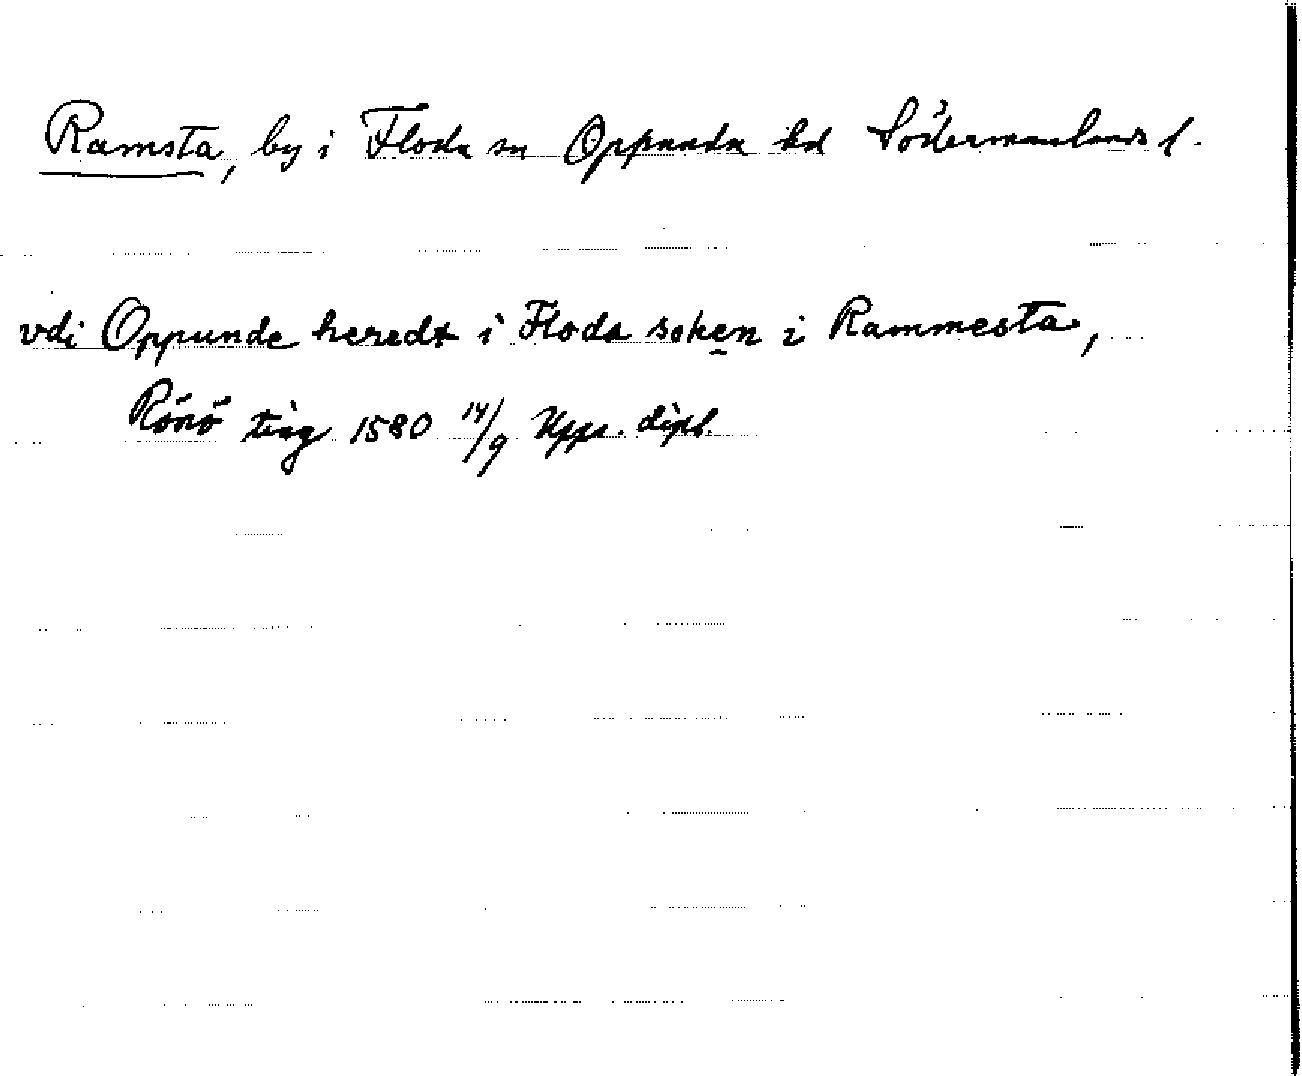 Ramsta, by i Floda sn Oppunda hd Södermanlands l.
vdi Oppunde heredt i Floda soken i Rammesta,
Rönö ting 1580 14/9 Upps. dipl.